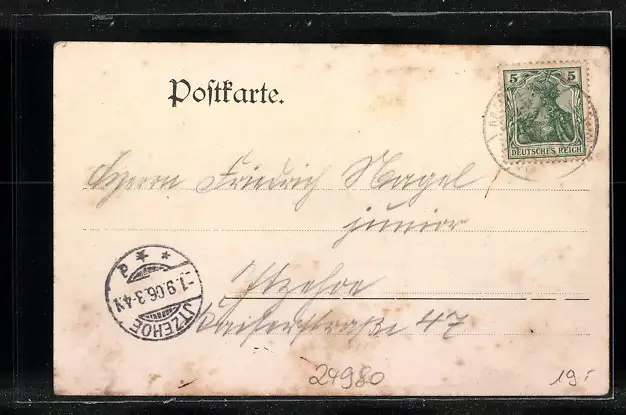 Postkarte.
5 5
DEUTSCHES REICH
Herrn Friedrich Nagel
junior
Itzehoe
Kaiserstraße 47
ITZEHOE
-1.9.06.3-4N
24980
19.-